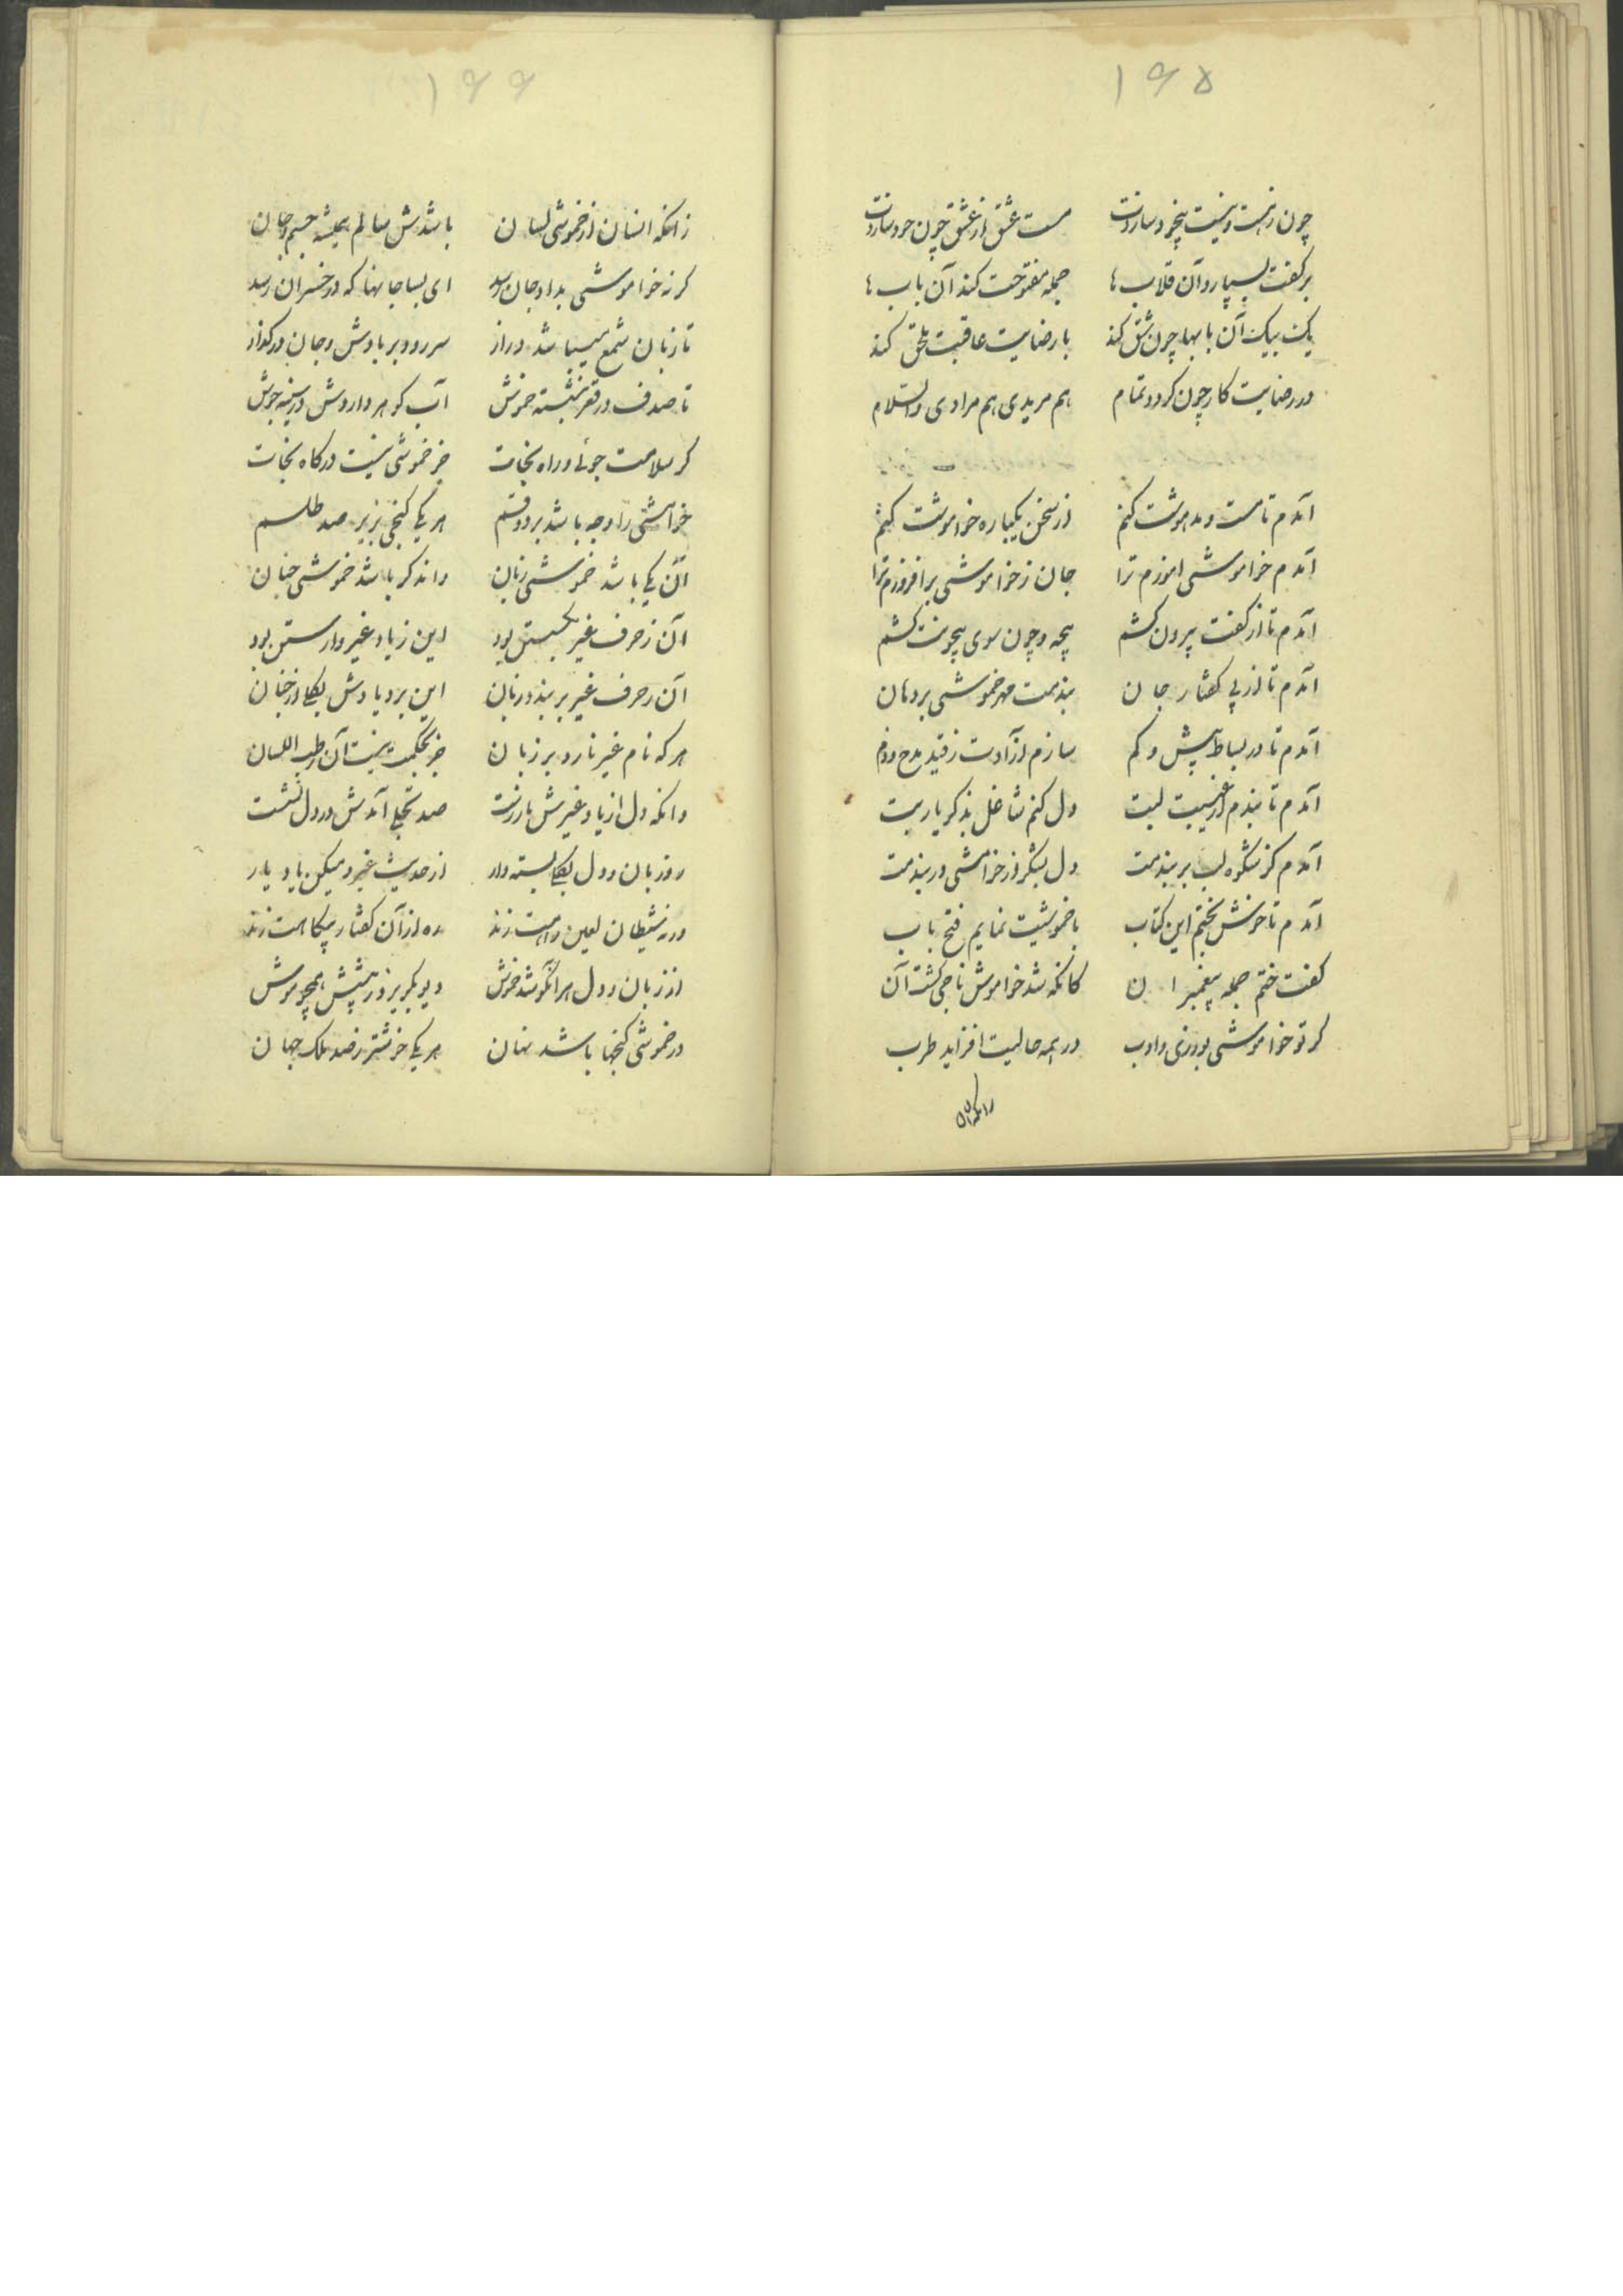 ۱۶۵
چون زهست و نیست بیخود سازدت مست عشق از عشق چون خود سازدت
بر کفت بسپارد آن قلاب‌ها جمله مفتوحت کند آن باب‌ها
یک بیک آن بابها چون شق کند با رضایت عاقبت ملحق کند
در رضایت کار چون کردد تمام هم مریدی هم مرادی والسلام
آمدم تا مست و مدهوشت کنم از سخن یکباره خاموشت کنم
آمدم خاموشی اموزم ترا جان ز خاموشی برافروزم ترا
آمدم تا از کفت بیرون کشم بیچه و چون سوی بیچونت کشم
آمدم تا از پی کفتار جان بندمت مهر خموشی بر دهان
آمدم تا در بساط بیش و کم سازم آزادت ز قید مدح و ذم
آمدم تا بندم از غیبت لبت دل کنم شاغل بذکر یاربت
آمدم کز شکوه لب بر بندمت دل بشکر از خامشی در بندمت
آمدم تا خوش بختم این کتاب با خموشیت نمایم فتح باب
کفت ختم جمله پیغمبر ان کانکه شد خاموش ناجی کشت آن
کر تو خاموشی بورزی با ادب در همه حالیت افزاید طرب
زانکه انسان
۱۶۶
زانکه انسان از خموشی لسان باشدش سالم همیشه جسم و جان
کر نه خاموشی بداد جان رسد ای بسا جانها که در خسران رسد
تا زبان شمع میباشد دراز سر رود بر بادش و جان در کداز
تا صدف در قعر بنشسته خموش آب کوهر دارد وش در سینه جوش
کر سلامت جوئی و راه نجات جز خموشی نیست درکاه نجات
خامشی را وجه باشد بر دو قسم هر یکی کنجی بزیر صد طلسم
آن یکی باشد خموشی زبان واندکر باشد خموشی جنان
آن ز حرف غیر لب بستن بود این ز یاد غیر وارستن بود
آن ز حرف غیر بر بندد زبان این برد یادش بکلی از جنان
هر که نام غیر نارد بر زبان جز بحکمت نیست آن رطب اللسان
وانکه دل از یاد غیرش باز رست صد تجلی آمدش در دل نشست
رو زبان و دل بکلی بسته دار از حدیث غیر و میکن یاد یار
ورنه شیطان لعین راهت زند ره از آن کفتار بیکاهت زند
از زبان و دل هر آنکو شد خموش دیو بکریزد ز پیشش همچو موش
در خموشی کنجها باشد نهان هر یکی خوشتر ز صد ملک جهان